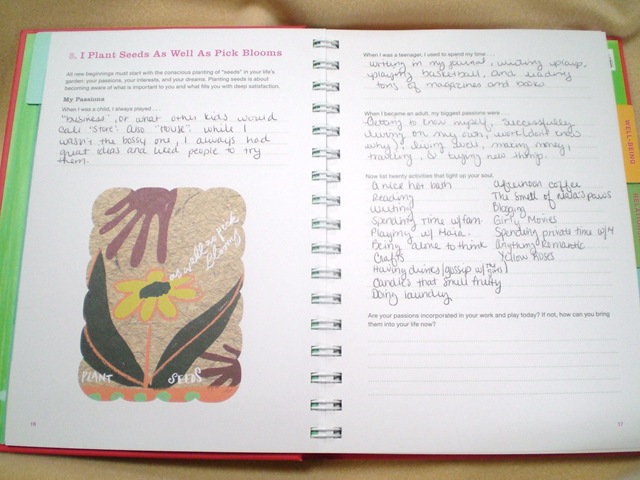 5. I Plant Seeds As Well As Pick Blooms
All new beginnings must start with the conscious planting of "seeds" in your life's
garden: your passions, your interests, and your dreams. Planting seeds is about
becoming aware of what is important to you and what fills you with deep satisfaction.
My Passions
When I was a child, I always played . . .
"business", or what other kids would
call "store". Also "house". While I
wasn't the bossy one, I always had
great ideas and liked people to try
them.
as well as pick
blooms
PLANT SEEDS
16
When I was a teenager, I used to spend my time . . .
writing in my journal, writing
playing basketball, and reading
tons of magazines and books
When I became an adult, my biggest passions were . . .
Getting to know myself, successfully
living on my own, worldon't know
why), living well, making money,
traveling, & trying new things.
Now list twenty activities that light up your soul.
A nice hot bath
Reading
Writing
Spending time w/ fam.
Playing w/
Being alone to think
Crafts
Having drinks/gossip w/ the girls
Candles that smell fruity
Doing laundry
Afternoon coffee
The smell of paws
Blogging
Girly Movies
Spending private time w/
Anything Romantic
Yellow Roses
Are your passions incorporated in your work and play today? If not, how can you bring
them into your life now?
17
WELL-BEING